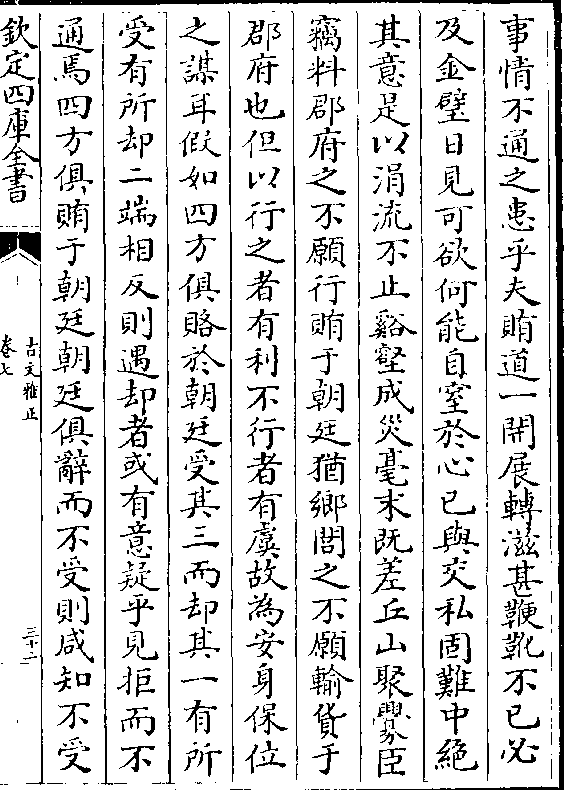 事情不通之患乎夫賄道一開展轉滋甚鞭靴不已必
及金璧日見可欲何能自窒於心已與交私固難中絕
其意是以涓流不止谿壑成災毫末既差丘山聚釁臣
竊料郡府之不願行賄于朝廷猶鄉閭之不願輸貨于
郡府也但以行之者有利不行者有虞故為安身保位
之謀耳假如四方俱賂於朝廷受其三而却其一有所
受有所却二端相反則遇却者或有意疑乎見拒而不
通焉四方俱賄于朝廷朝廷俱辭而不受則咸知不受
欽定四庫全書
古文雅正
卷七
三十二